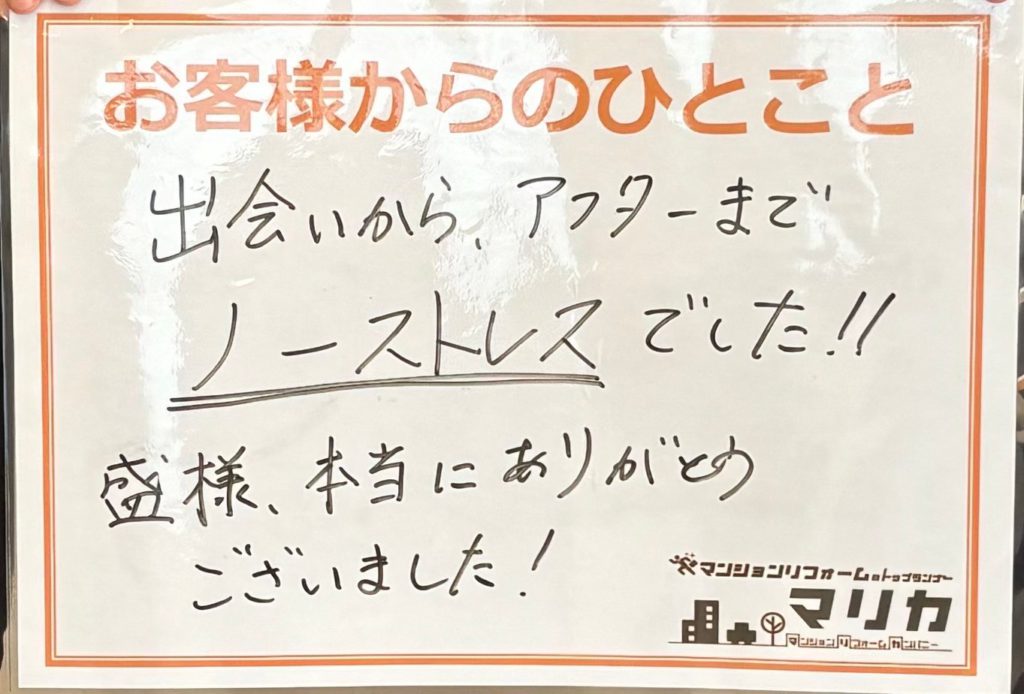 お客様からのひとこと
出会いから、アフターまで
ノーストレスでした!!
盛様、本当にありがとう
ございました!
マンションリフォームのトップランナー
マリカ
マンションリフォームカンパニー